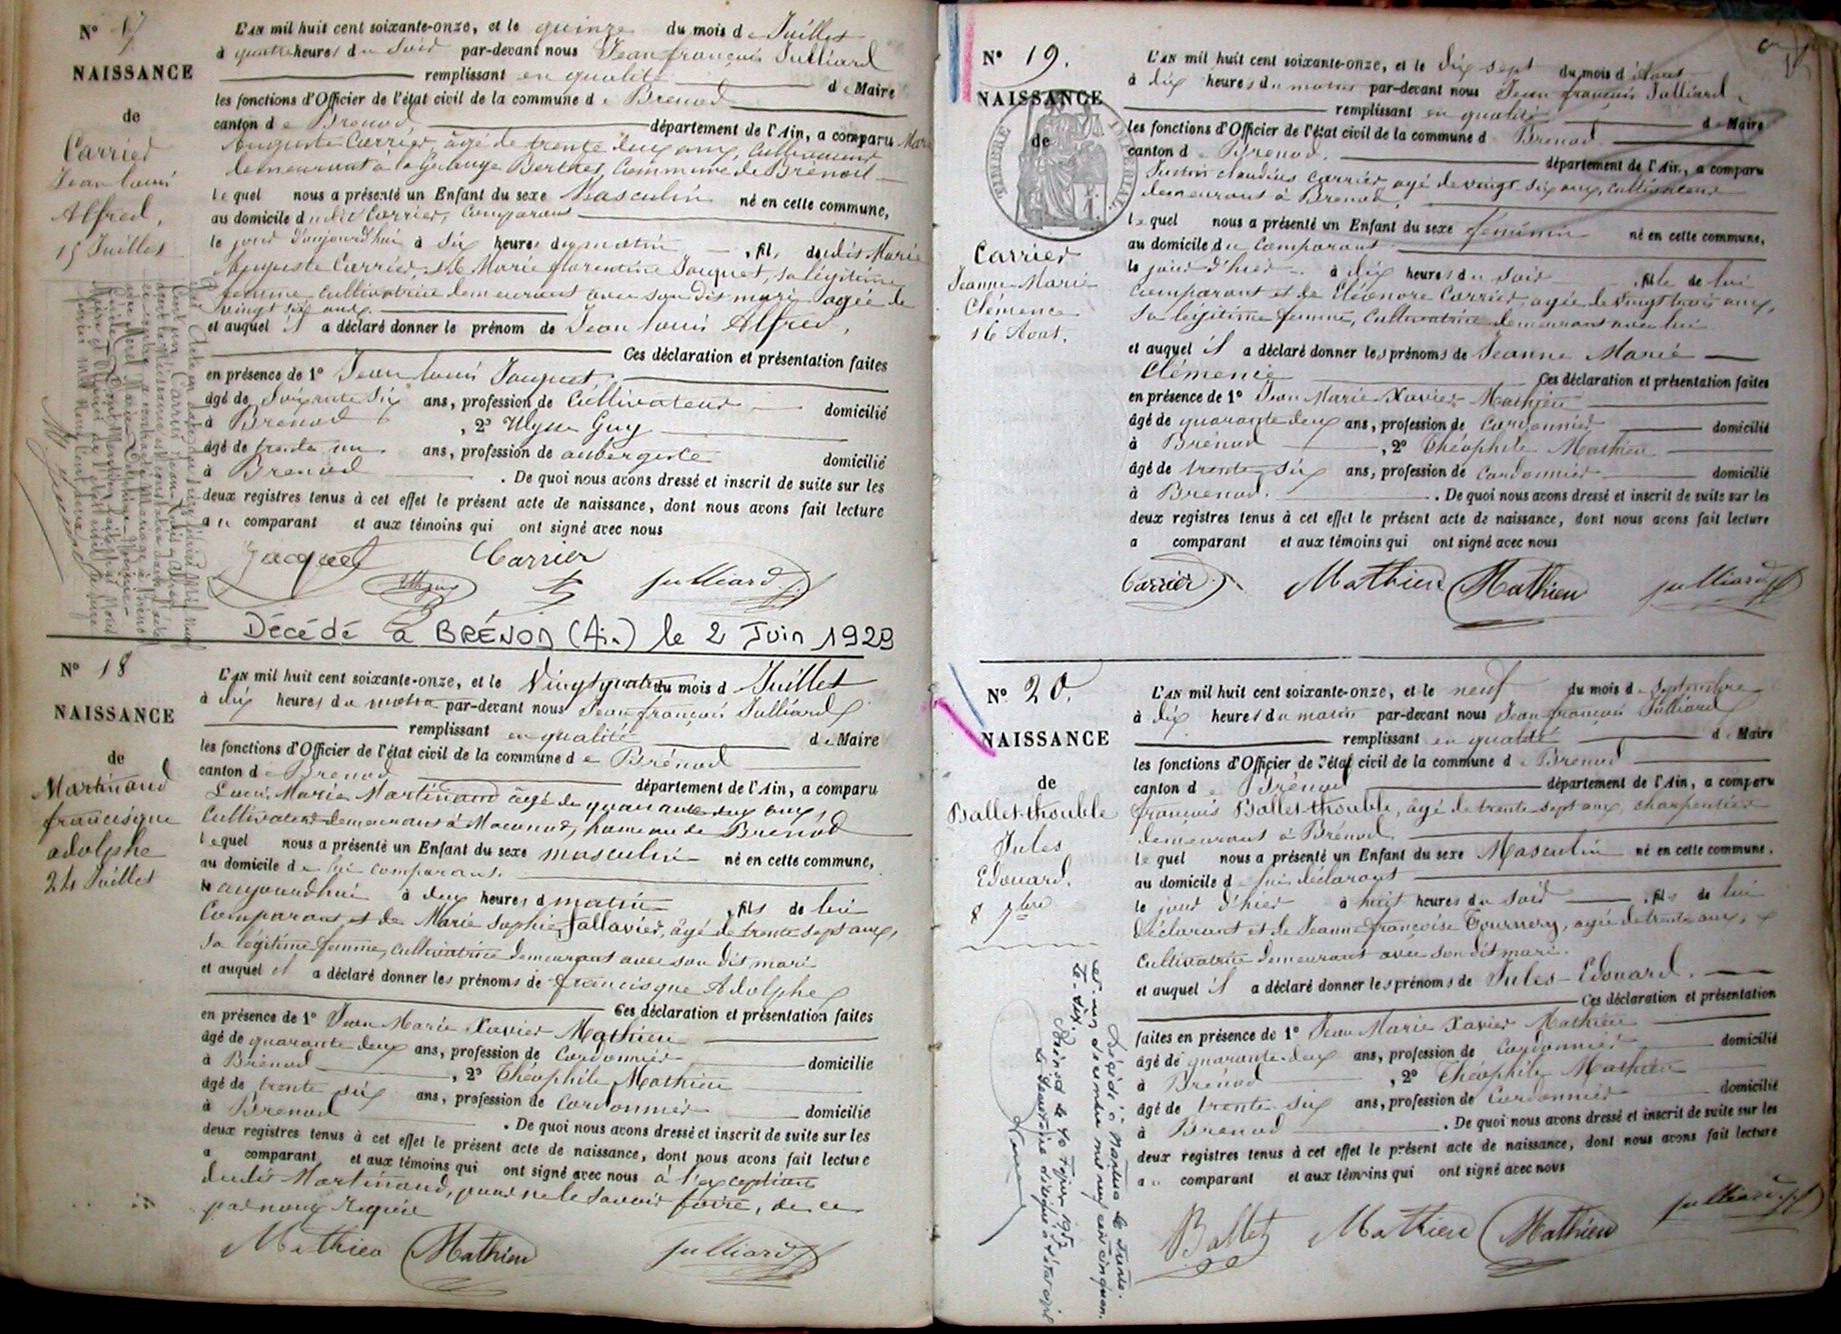 N° 17
NAISSANCE
de
Carrier
Jean Louis
Alfred,
15 Juillet
L'AN mil huit cent soixante-onze, et le quinze du mois de Juillet
à quatre heures du soir par-devant nous Jean françois Julliard
remplissant en qualité de Maire
les fonctions d'Officier de l'état civil de la commune de Brenod
canton de Brenod département de l'Ain, a comparu Marie
Auguste Carrier, âgé de trente deux ans, cultivateur
demeurant à la Grange Berthet, Commune de Brénod
lequel nous a présenté un Enfant du sexe Masculin né en cette commune,
au domicile dudit Carrier, comparant
le jour d'aujourd'hui à six heures du matin, fils dudit Marie
Auguste Carrier, et de Marie florentine Jacquet, sa légitime
femme cultivatrice demeurant avec son dit mari agée de
vingt six ans.
et auquel il a déclaré donner le prénom de Jean Louis Alfred,
Ces déclaration et présentation faites
en présence de 1° Jean Louis Jacquet
âgé de soixante six ans, profession de Cultivateur domicilié
à Brenod, 2° Ulysse Guy
âgé de trente un ans, profession de aubergiste domicilié
à Brenod. De quoi nous avons dressé et inscrit de suite sur les
deux registres tenus à cet effet le présent acte de naissance, dont nous avons fait lecture
au comparant et aux témoins qui ont signé avec nous
Jacquet Carrier
Julliard
Décédé à BRÉNOD (Ain) le 2 Juin 1929
N° 18
NAISSANCE
de
Martinand
francisque
adolphe
24 Juillet
L'AN mil huit cent soixante-onze, et le Vingt quatre du mois d Juillet
à dix heures du matin par-devant nous Jean françois Julliard
remplissant en qualité de Maire
les fonctions d'Officier de l'état civil de la commune de Brénod
canton de Brenod département de l'Ain, a comparu
Marie Martinand âgé de quarante deux ans,
Cultivateur demeurant à Maconod, hameau de Brenod
lequel nous a présenté un Enfant du sexe masculin né en cette commune,
au domicile de lui comparant.
aujourdhui à deux heures d matin, fils de lui
Comparant et de Marie Sophie Tallavier, âgé de trente sept ans,
sa légitime femme, cultivatrice demeurant avec son dit mari
et auquel il a déclaré donner les prénoms de francisque Adolphe
Ces déclaration et présentation faites
en présence de 1° Jean Marie Xavier Mathieu
âgé de quarante deux ans, profession de Cordonnier domicilié
à Brénod, 2° Théophile Mathieu
âgé de trente six ans, profession de Cordonnier domicilié
à Brenod. De quoi nous avons dressé et inscrit de suite sur les
deux registres tenus à cet effet le présent acte de naissance, dont nous avons fait lecture
a comparant et aux témoins qui ont signé avec nous à l'exception
dudit Martinand, pour ne le savoir faire, de ce
par nous requis
Mathieu Mathieu Julliard
N° 19.
NAISSANCE
de
Carrier
Jeanne Marie
Clémence
16 Aout.
L'AN mil huit cent soixante-onze, et le dix sept du mois d'Aout
à dix heures du matin par-devant nous Jean françois Julliard
remplissant en qualité de Maire
les fonctions d'Officier de l'état civil de la commune d Brenod.
canton de Brenod. département de l'Ain, a comparu
Justin claudius Carrier, agé de vingt six ans, cultivateur
demeurant à Brenod,
lequel nous a présenté un Enfant du sexe féminin né en cette commune,
au domicile du comparant
le jour d'hier à dix heures du soir, fille de lui
comparant et de Eléonore Carrier, agée de vingt trois ans,
sa légitime femme, Cultivatrice demeurant avec lui
et auquel il a déclaré donner les prénoms de Jeanne Marie
Clémence Ces déclaration et présentation faites
en présence de 1° Jean Marie Xavier Mathieu
âgé de quarante deux ans, profession de Cordonnier domicilié
à Brenod, 2° Théophile Mathieu
âgé de trente six ans, profession de Cordonnier domicilié
à Brenod. De quoi nous avons dressé et inscrit de suite sur les
deux registres tenus à cet effet le présent acte de naissance, dont nous avons fait lecture
a comparant et aux témoins qui ont signé avec nous
Carrier Mathieu Mathieu Julliard
N° 20.
NAISSANCE
de
Ballet-thouble
Jules
Edouard.
8 7bre
L'AN mil huit cent soixante-onze, et le neuf du mois de Septembre
à dix heures du matin par-devant nous Jean françois Julliard
remplissant en qualité de Maire
les fonctions d'Officier de l'état civil de la commune d Brenod
canton de Brénod département de l'Ain, a comparu
françois Ballet-thouble, agé de trente sept ans, charpentier
demeurant à Brénod
lequel nous a présenté un Enfant du sexe Masculin né en cette commune.
au domicile de lui déclarant
le jour d'hier à huit heures du soir, fils de lui
déclarant et de Jeanne françoise Tournery, agée de trente ans,
Cultivatrice demeurant avec son dit mari.
et auquel il a déclaré donner les prénoms de Jules-Edouard.
Ces déclaration et présentation
faites en présence de 1° Jean Marie Xavier Mathieu
âgé de quarante-deux ans, profession de Cordonnier domicilié
à Brénod, 2° Théophile Mathieu
âgé de trente six ans, profession de Cordonnier domicilié
à Brenod. De quoi nous avons dressé et inscrit de suite sur les
deux registres tenus à cet effet le présent acte de naissance, dont nous avons fait lecture
au comparant et aux témoins qui ont signé avec nous
Ballet Mathieu Mathieu Julliard
Décédé à Nantua le trente-
et-un décembre mil neuf cent cinquan-
te-six.
Brénod le 10 1957
Le Secrétaire délégué à l'état civil